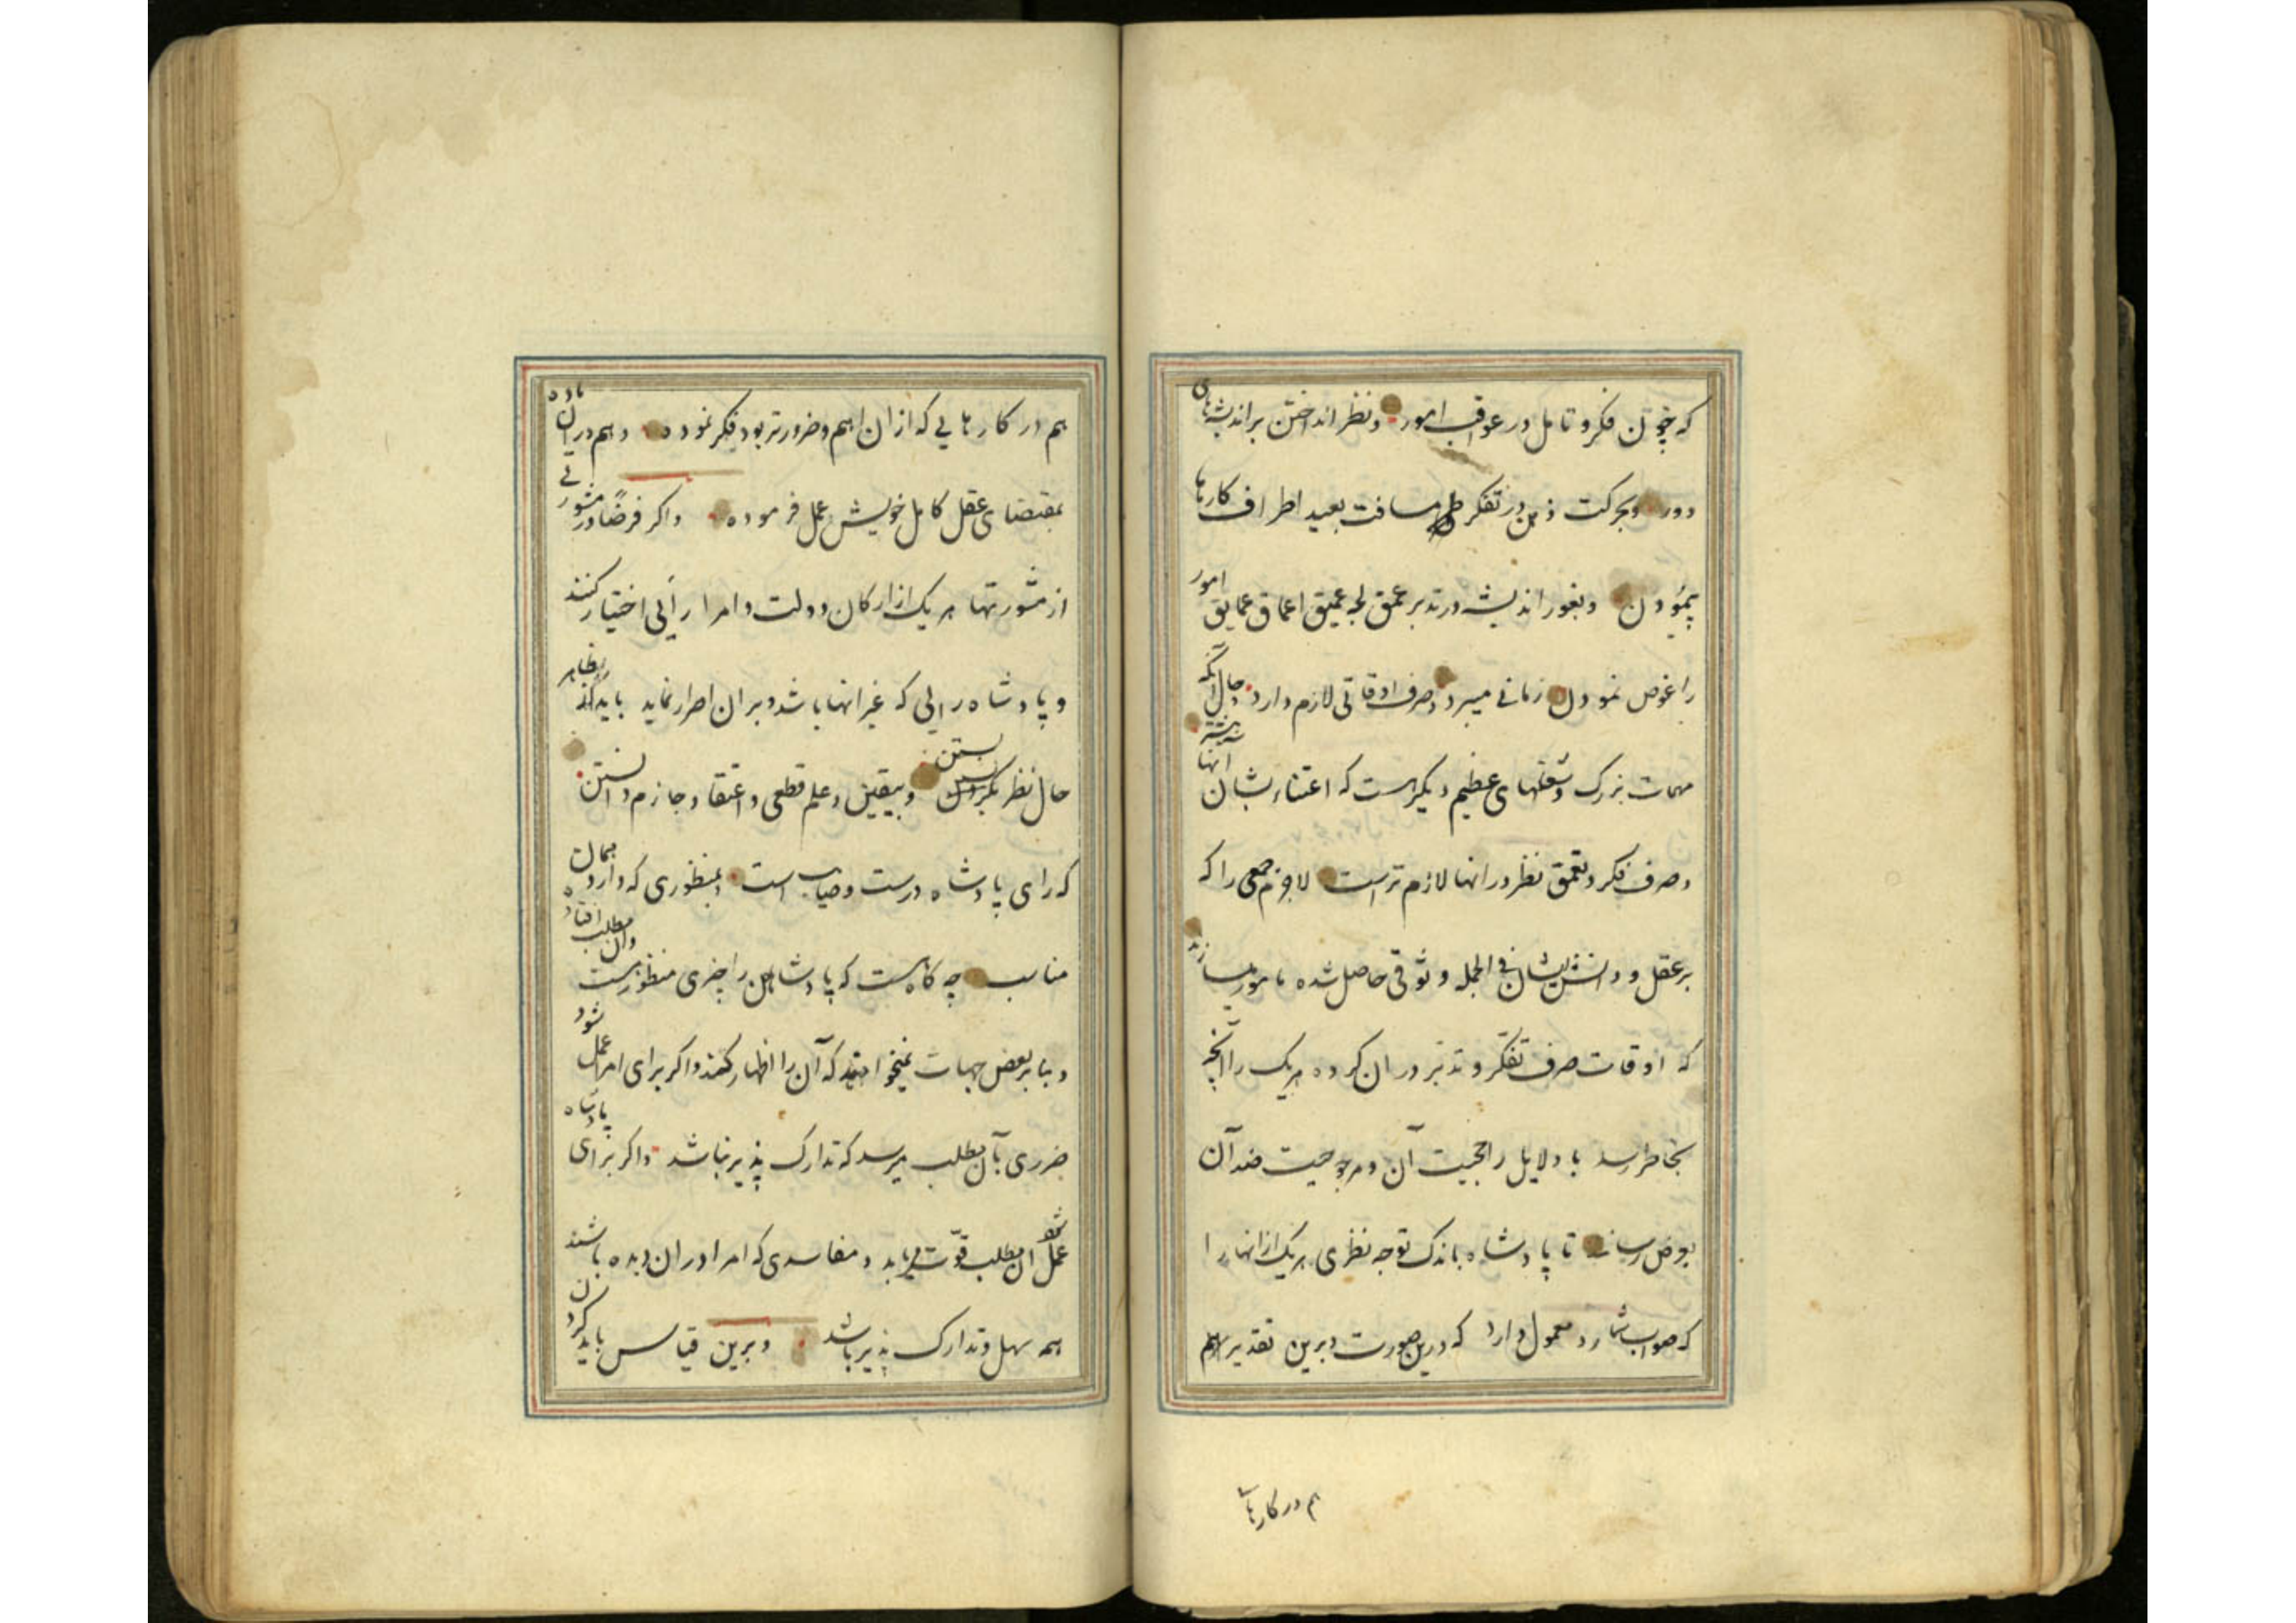 که چون فکر و تامل در عواقب امور و نظر انداختن بر اندیشهای
دور و بحرکت ذهن در تفکر طی مسافت بعید اطراف کارها
پیمودن و بغور اندیشه در تدبر عمق لجه عمیق اعماق عمایق امور
را غوص نمودن زمانی میبرد و صرف اوقاتی لازم دارد و حال آنکه
مهمات بزرک و شغلهای عظیم دیکر هست که اعتناء بشان آنها بیشتر
و صرف فکر و تعمق نظر در انها لازم تر است لاجرم جمعی را که
بر عقل و دانش ایشان فی الجمله وثوقی حاصل شده مامور میسازند
که اوقات صرف تفکر و تدبر در ان کرده هریک را آنچه
بخاطر رسد با دلایل راجحیت آن و مرجوحیت ضد آن
بعرض رسانند تا پادشاه باندک توجه نظری هریک از انها را
که صواب شمارد معمول دارد که درین صورت و برین تقدیر هم
هم در کارها
هم در کارهایی که از ان اهم و ضرورتر بود فکر نموده و هم در ان ماده
بمقتضای عقل کامل خویش عمل فرموده و اکر فرضا در مشورتی
از مشورتها هریک از ارکان دولت و امرا رأیی اختیار کنند
و پادشاه رایی که غیر انها باشد و بر ان اصرار نماید باید که بظاهر
حال نظر بستن و بیقین و علم قطعی و اعتقاد جازم دانستن
که رای پادشاه درست و صایب است و بمنظوری که دارد بهمان
مناسب چه کاه هست که پادشاهان را چیزی منظور هست وان مطلب افتاده
و بنا بر بعض جهات نمیخواهند که آن را اظهار کنند و اکر برای امرا عمل شود
ضرری بآن مطلب میرسد که تدارک پذیر نباشد و اکر برای پادشاه
عمل شود ان مطلب قوّت مییابد و مفاسدی که امرا در ان دیده باشند
همه سهل و تدارک پذیر باشد و برین قیاس باید کردن